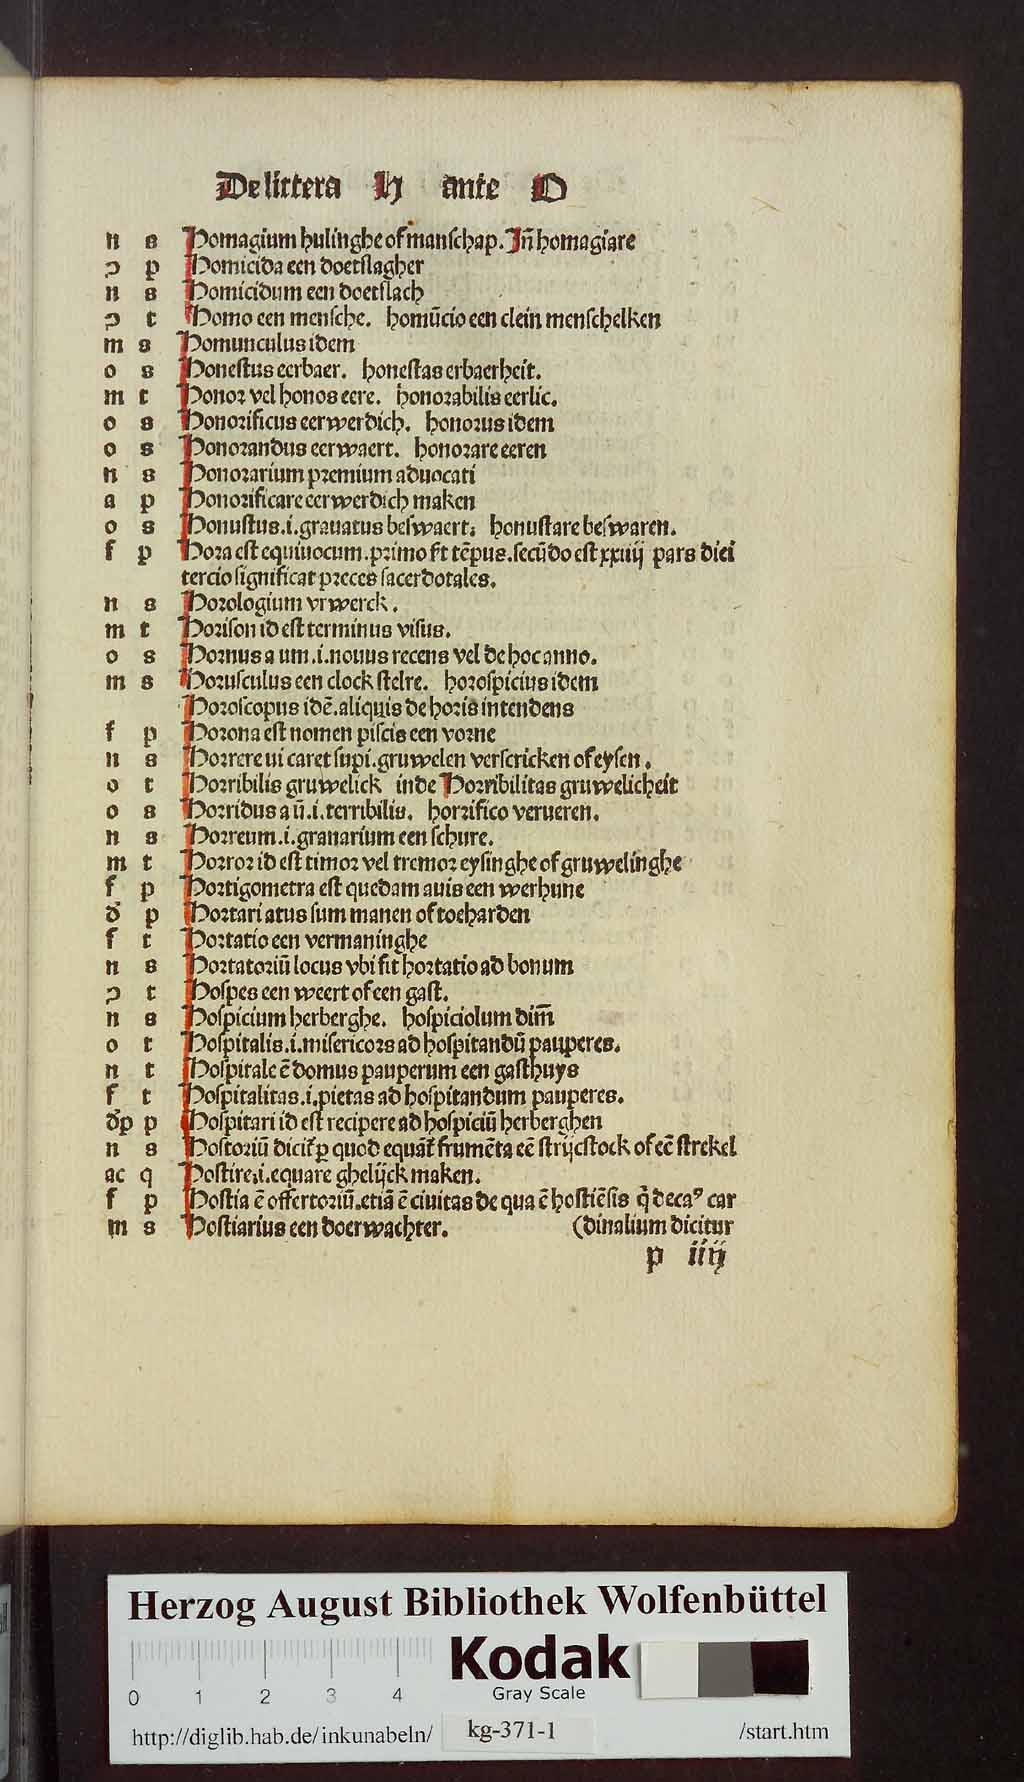 De littera H ante O
n s Homagium hulinghe of manschap. Jn̄ homagiare
ɔ p Homicida een doetslagher
n s Homicidum een doetslach
ɔ t Homo een mensche. homūcio een clein menschelken
m s Homunculus idem
o s Honestus eerbaer. honestas erbaerheit.
m t Honor vel honos eere. honorabilis eerlic.
o s Honorificus eerwerdich. honorus idem
o s Honorandus eerwaert. honorare eeren
n s Honorarium premium aduocati
a p Honorificare eerwerdich maken
o s Honustus .i. grauatus beswaert: honustare beswaren.
f p Hora est equiuocum. primo ſt tēpus. secūdo est xxiiij pars diei
tercio significat preces sacerdotales.
n s Horologium vrwerck.
m t Horison id est terminus visus.
o s Hornus a um .i. nouus recens vel de hoc anno.
m s Horusculus een clock stelre. horospicius idem
Horoscopus idē. aliquis de horis intendens
f p Horona est nomen piscis een vorne
n s Horrere ui caret supi. gruwelen verscricken of eysen.
o t Horribilis gruwelick inde Horribilitas gruwelicheit
o s Horridus a ū .i. terribilis. horrifico verueren.
n s Horreum .i. granarium een schure.
m t Horror id est timor vel tremor eysinghe of gruwelinghe
f p Hortigometra est quedam auis een werhune
đ p Hortari atus sum manen of toeharden
f t Hortatio een vermaninghe
n s Hortatoriū locus vbi fit hortatio ad bonum
ɔ t Hospes een weert of een gast.
n s Hospicium herberghe. hospiciolum dim̄
o t Hospitalis .i. misericors ad hospitandū pauperes.
n t Hospitale ē domus pauperum een gasthuys
f t Hospitalitas .i. pietas ad hospitandum pauperes.
đp p Hospitari id est recipere ad hospiciū herberghen
n s Hostoriū dicit᷑ ꝑ quod equāt᷑ frumēta eē strijcstock of eē strekel
ac q Hostire .i. equare ghelijck maken.
f p Hostia ē offertoriū. etiā ē ciuitas de qua ē hostiēsis q̄ decaꝰ car
m s Hostiarius een doerwachter. (dinalium dicitur
p iiij
Herzog August Bibliothek Wolfenbüttel
Kodak
Gray Scale
0 1 2 3 4
http://diglib.hab.de/inkunabeln/ kg-371-1 /start.htm